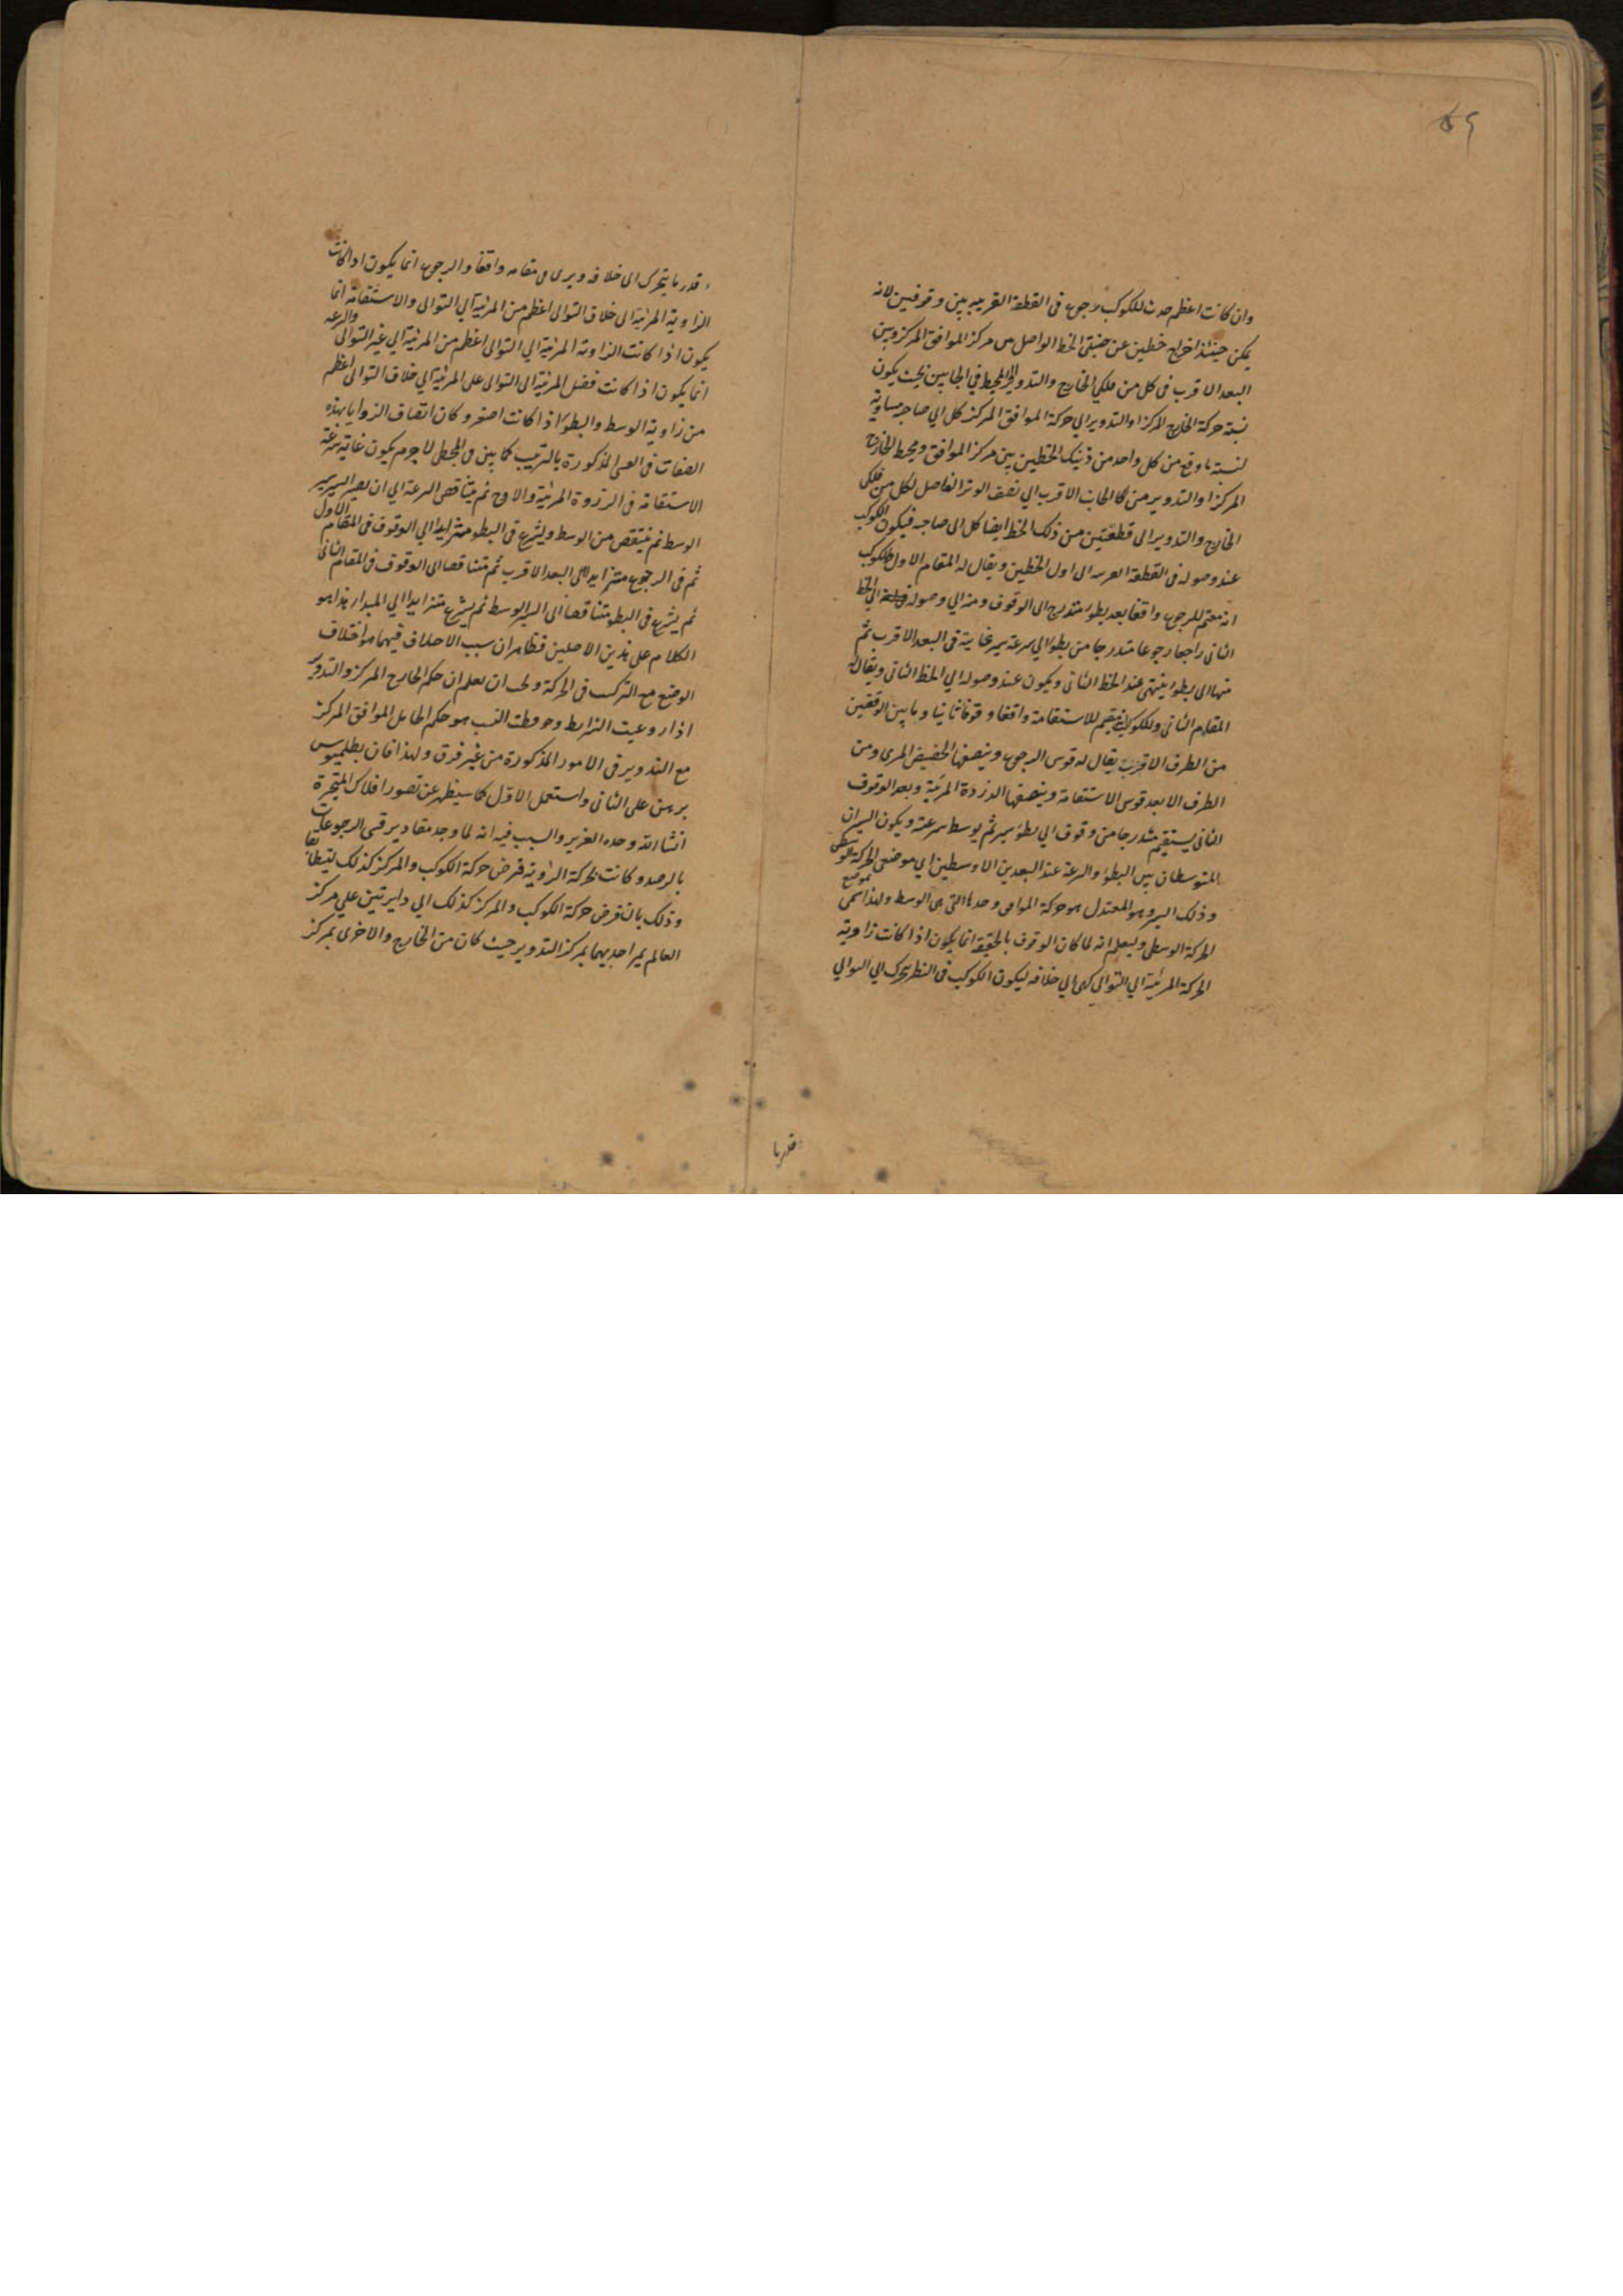 ٤٩
وان كانت اعظم حدث للكوكب رجوع فى القطعة القريبه بين وقوفين لانه
يمكن حينئذ اخراج خطين عن جنبتى الخط الواصل من مركز الموافق المركز وبين
البعد الاقرب فى كل من فلكي الخارج والتدوير الى المحيط في الجانبين بحيث يكون
نسبة حركة الخارج المركز او التدوير الي حركة الموافق المركز كل الي صاحبه مساوية
لنسبة ما وقع من كل واحد من ذينك الخطين بين مركز الموافق ومحيط الخارج
المركز او التدوير من الجانب الاقرب الي نصف الوتر الفاصل لكل من فلكى
الخارج والتدوير الى قطعتين من ذلك الخط ايضا كل الى صاحبه فيكون الكوكب
عند وصوله فى القطعة القريبه الى اول الخطين ويقال له المقام الاول وللكوكب
انه مقيم للرجوع واقفا بعد بطؤ متدرج الى الوقوف ومنه الي وصوله الي الخط
الثانى راجعا رجوعا متدرجا من بطؤ الي سرعة سير غايته فى البعد الاقرب ثم
منها الى بطؤ ينتهى عند الخط الثانى ويكون عند وصوله الي الخط الثانى ويقال له
المقام الثانى وللكوكب انه مقيم للاستقامة واقفا وقوفا ثانيا وما بين الوقفتين
من الطرف الاقرب يقال له قوس الرجوع وينصفها الحضيض المرى ومن
الطرف الابعد قوس الاستقامة وينصفها الذروة المرئية وبعد الوقوف
الثانى يستقيم متدرجا من وقوف الي بطؤ سير ثم يوسط سرعته ويكون السيران
المتوسطان بين البطؤ والسرعة عند البعدين الاوسطين اي موضعى الحركة الوسطى
وذلك السير هو المعتدل هو حركة الموافق وحدها التى هى الوسط ولهذا سمى موضع
الحركة الوسطى وليعلم انه لما كان الوقوف بالحقيقة انما يكون اذا كانت زاوية
الحركة المرئية الي التوالي كهى الي خلافه ليكون الكوكب فى النظر يتحرك الي التوالي
قدر ما
قدر ما يتحرك الى خلافه ويرى فى مقامه واقفا والرجوع انما يكون اذا كانت
الزاوية المرئية الى خلاف التوالى اعظم من المرئية الي التوالى والاستقامة انما
يكون اذا كانت الزاوية المرئية الي التوالى اعظم من المرئية الي غير التوالى والسرعه
انما يكون اذا كانت فضل المرئية الى التوالى على المرئية الي خلاف التوالى اعظم
من زاوية الوسط والبطؤ اذا كانت اصغر وكان اتصاف الزوايا بهذه
الصفات فى القسى المذكورة بالترتيب كما بين فى المجسطى لا جرم يكون غاية سرعة
الاستقامة فى الذروة المرئية والاوج ثم يتناقص السرعة الي ان يصير السير
الوسط ثم ينتقص من الوسط ويشرع فى البطؤ متزايدا الي الوقوف فى المقام الاول
ثم فى الرجوع متزايدا الى البعد الاقرب ثم متناقصا الى الوقوف فى المقام الثانى
ثم يشرع فى البطؤ متناقصا الى السير الوسط ثم يشرع متزايدا الي المبدا هذا هو
الكلام على هذين الاصلين فظاهر ان سبب الاختلاف فيهما هو اختلاف
الوضع مع التركيب فى الحركة ويجب ان يعلم ان حكم الخارج المركز والتدوير
اذا روعيت الشرايط وحوفظت النسب هو حكم الحامل الموافق المركز
مع التدوير فى الامور المذكورة من غير فرق ولهذا فان بطلميوس
برهن على الثانى واستعمل الاول كما سيظهر عن تصور افلاك المتحيرة
انشا الله وحده العزيز والسبب فيه انه لما وجد مقادير قسى الرجوعات
بالرصد وكانت الحركة الرؤية فرض حركة الكوكب والمركز كذلك ليتطابقا
وذلك بان فرض حركة الكوكب والمركز كذلك الي دايرتين علي مركز
العالم يمر احديهما بمركز التدوير حيث كان من الخارج والاخرى بمركز